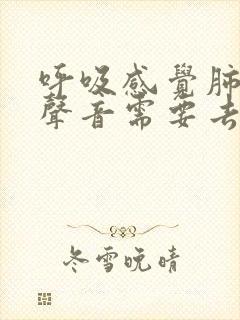 呼吸感覺肺
聲音需要去
冬雪晚晴